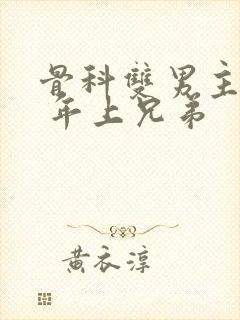 骨科雙男主
年上兄弟
黄衣淳